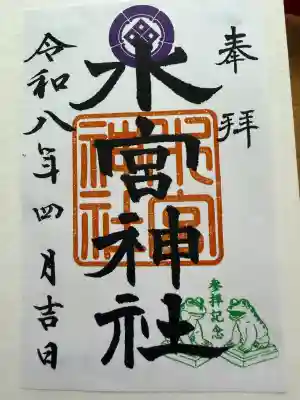 奉拝
水宮神社
水宮神社
参拝記念
令和八年四月吉日